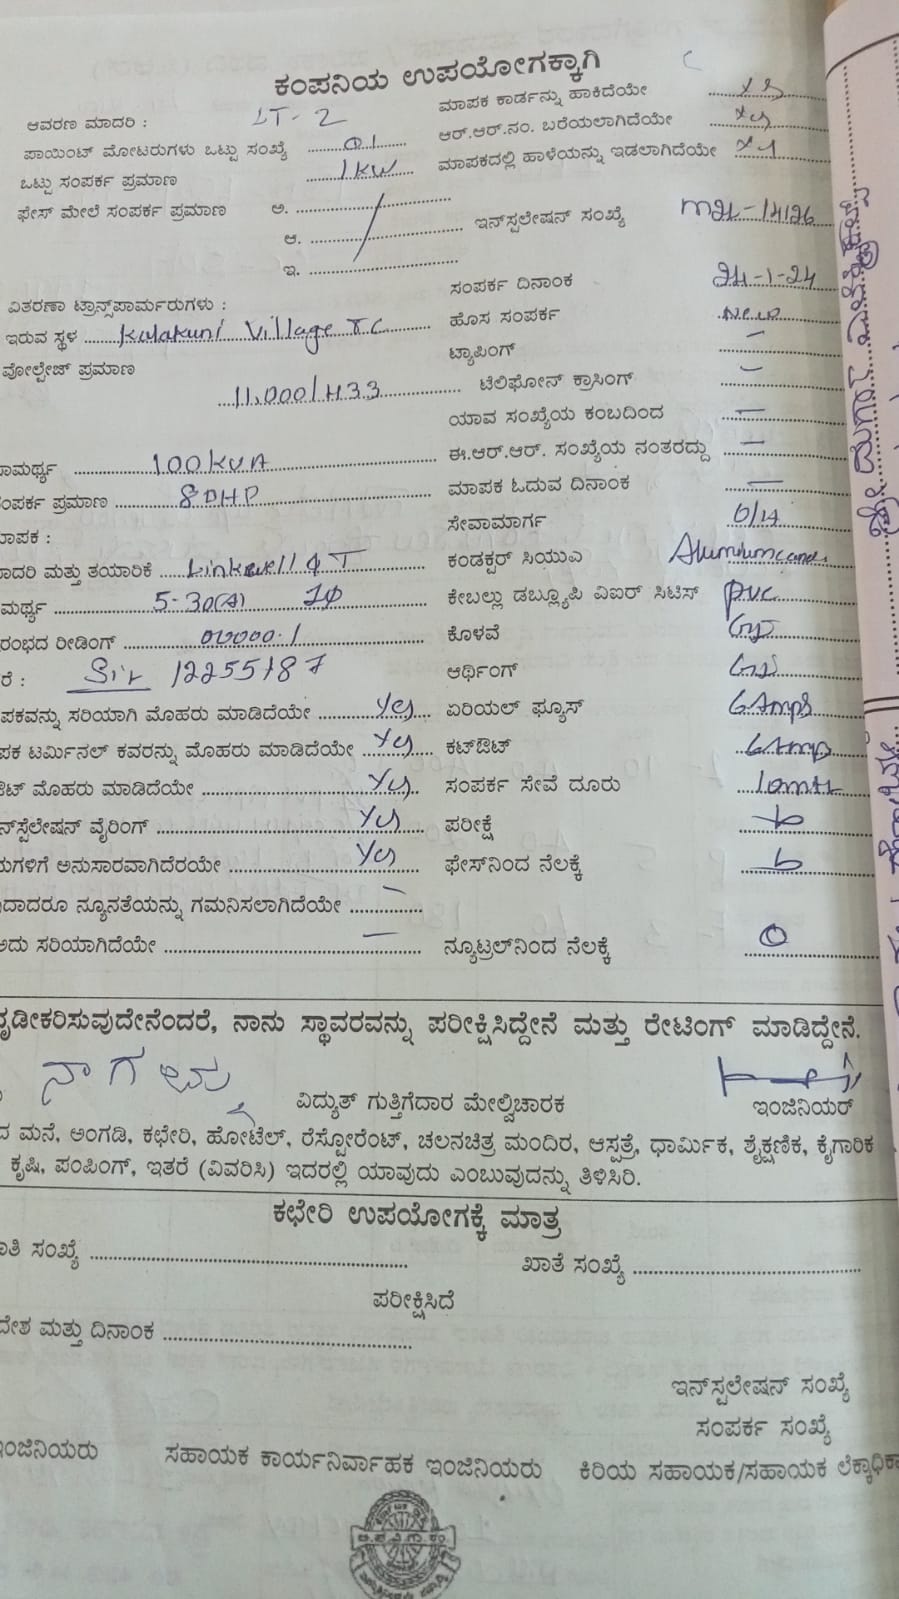 ಕಂಪನಿಯ ಉಪಯೋಗಕ್ಕಾಗಿ
ಆವರಣ ಮಾದರಿ : LT-2
ಮಾಪಕ ಕಾರ್ಡನ್ನು ಹಾಕಿದೆಯೇ
ಪಾಯಿಂಟ್ ಮೋಟರುಗಳು ಒಟ್ಟು ಸಂಖ್ಯೆ 01
ಆರ್.ಆರ್.ನಂ. ಬರೆಯಲಾಗಿದೆಯೇ
ಒಟ್ಟು ಸಂಪರ್ಕ ಪ್ರಮಾಣ 1KW
ಮಾಪಕದಲ್ಲಿ ಹಾಳೆಯನ್ನು ಇಡಲಾಗಿದೆಯೇ
ಫೇಸ್ ಮೇಲೆ ಸಂಪರ್ಕ ಪ್ರಮಾಣ ಅ.
ಆ.
ಇ.
ಇನ್‌ಸ್ಪಲೇಷನ್ ಸಂಖ್ಯೆ
ಸಂಪರ್ಕ ದಿನಾಂಕ 24-1-24
ವಿತರಣಾ ಟ್ರಾನ್ಸ್‌ಪಾರ್ಮರುಗಳು :
ಹೊಸ ಸಂಪರ್ಕ New
ಇರುವ ಸ್ಥಳ Kalakuni Village T.C
ಟ್ಯಾಪಿಂಗ್ —
ವೋಲ್ಟೇಜ್ ಪ್ರಮಾಣ
11,000/433
ಟೆಲಿಫೋನ್ ಕ್ರಾಸಿಂಗ್ —
ಯಾವ ಸಂಖ್ಯೆಯ ಕಂಬದಿಂದ —
ಾಮರ್ಥ್ಯ 100KVA
ಈ.ಆರ್.ಆರ್. ಸಂಖ್ಯೆಯ ನಂತರದ್ದು —
ಂಪರ್ಕ ಪ್ರಮಾಣ 80HP
ಮಾಪಕ ಓದುವ ದಿನಾಂಕ —
ಾಪಕ :
ಸೇವಾಮಾರ್ಗ 6/14
ಾದರಿ ಮತ್ತು ತಯಾರಿಕೆ Linkwell
ಕಂಡಕ್ಟರ್ ಸಿಯುಎ
ಮರ್ಥ್ಯ 5-30(A) 1Φ
ಕೇಬಲ್ಲು ಡಬ್ಲ್ಯೂಪಿ ವಿಐರ್ ಸಿಟಿಸ್ PVC
ರಂಭದ ರೀಡಿಂಗ್ 00000.1
ಕೊಳವೆ GI
ರೆ : 12255187
ಆರ್ಥಿಂಗ್ GI
ಪಕವನ್ನು ಸರಿಯಾಗಿ ಮೊಹರು ಮಾಡಿದೆಯೇ Yes
ಏರಿಯಲ್ ಫ್ಯೂಸ್ 6Amps
ಪಕ ಟರ್ಮಿನಲ್ ಕವರನ್ನು ಮೊಹರು ಮಾಡಿದೆಯೇ Yes
ಕಟ್‌ಔಟ್ 6Amp
ಔಟ್ ಮೊಹರು ಮಾಡಿದೆಯೇ Yes
ಸಂಪರ್ಕ ಸೇವೆ ದೂರು 10mtr
ನ್‌ಸ್ಪೆಲೇಷನ್ ವೈರಿಂಗ್ Yes
ಪರೀಕ್ಷೆ
ಯಗಳಿಗೆ ಅನುಸಾರವಾಗಿದೆರಯೇ Yes
ಫೇಸ್‌ನಿಂದ ನೆಲಕ್ಕೆ
ದಾದರೂ ನ್ಯೂನತೆಯನ್ನು ಗಮನಿಸಲಾಗಿದೆಯೇ —
ಅದು ಸರಿಯಾಗಿದೆಯೇ —
ನ್ಯೂಟ್ರಲ್‌ನಿಂದ ನೆಲಕ್ಕೆ 0
ೃಡೀಕರಿಸುವುದೇನೆಂದರೆ, ನಾನು ಸ್ಥಾವರವನ್ನು ಪರೀಕ್ಷಿಸಿದ್ದೇನೆ ಮತ್ತು ರೇಟಿಂಗ್ ಮಾಡಿದ್ದೇನೆ.
ವಿದ್ಯುತ್ ಗುತ್ತಿಗೆದಾರ ಮೇಲ್ವಿಚಾರಕ
ಇಂಜಿನಿಯರ್
ದ ಮನೆ, ಅಂಗಡಿ, ಕಛೇರಿ, ಹೋಟೆಲ್, ರೆಸ್ಟೋರೆಂಟ್, ಚಲನಚಿತ್ರ ಮಂದಿರ, ಆಸ್ಪತ್ರೆ, ಧಾರ್ಮಿಕ, ಶೈಕ್ಷಣಿಕ, ಕೈಗಾರಿಕ
ಕೃಷಿ, ಪಂಪಿಂಗ್, ಇತರೆ (ವಿವರಿಸಿ) ಇದರಲ್ಲಿ ಯಾವುದು ಎಂಬುವುದನ್ನು ತಿಳಿಸಿರಿ.
ಕಛೇರಿ ಉಪಯೋಗಕ್ಕೆ ಮಾತ್ರ
ಾತಿ ಸಂಖ್ಯೆ
ಖಾತೆ ಸಂಖ್ಯೆ
ಪರೀಕ್ಷಿಸಿದೆ
ದೇಶ ಮತ್ತು ದಿನಾಂಕ
ಇನ್‌ಸ್ಪಲೇಷನ್ ಸಂಖ್ಯೆ
ಸಂಪರ್ಕ ಸಂಖ್ಯೆ
ಇಂಜಿನಿಯರು
ಸಹಾಯಕ ಕಾರ್ಯನಿರ್ವಾಹಕ ಇಂಜಿನಿಯರು
ಕಿರಿಯ ಸಹಾಯಕ/ಸಹಾಯಕ ಲೆಕ್ಕಾಧಿಕಾ